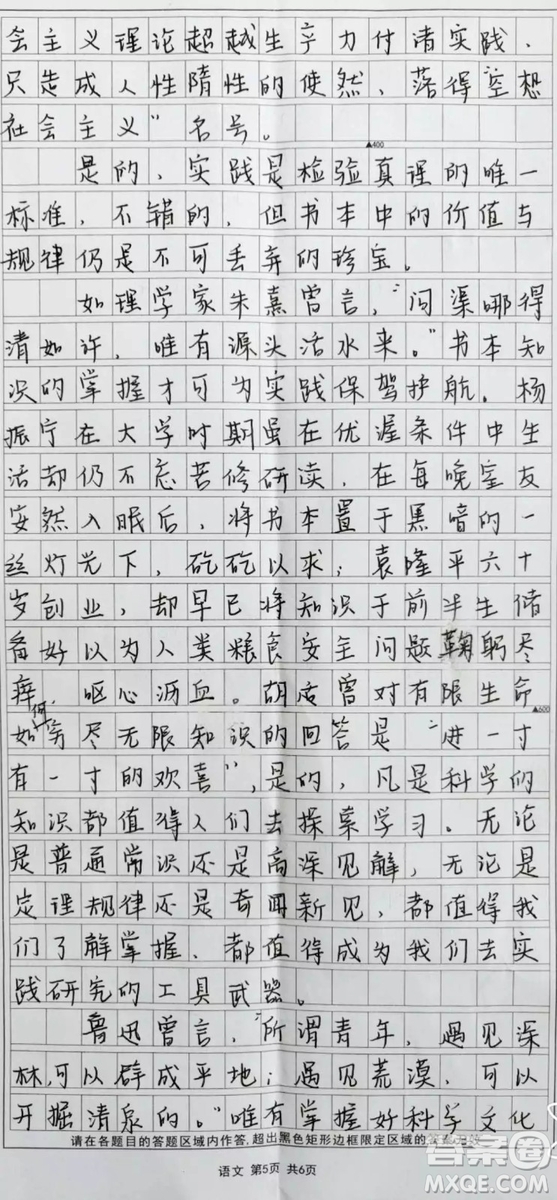 会主义理论超越生产力付清实践，
只造成人性隋性的使然，落得空想
社会主义”名号。
▲400
是的，实践是检验真理的唯一
标准，不错的，但书本中的价值与
规律仍是不可丢弃的珍宝。
如理学家朱熹曾言，“问渠哪得
清如许，唯有源头活水来。”书本知
识的掌握才可为实践保驾护航。杨
振宁在大学时期虽在优渥条件中生
活却仍不忘苦修研读，在每晚室友
安然入眠后，将书本置于黑暗的一
丝灯光下，矻矻以求；袁隆平六十
岁创业，却早已将知识于前半生储
备好以为人类粮食安全问题鞠躬尽
瘁，呕心沥血。胡适曾对有限生命
▲600
如何穷尽无限知识的回答是“进一寸
有一寸的欢喜”，是的，凡是科学的
知识都值得人们去探索学习。无论
是普通常识还是高深见解，无论是
定理规律还是奇闻新见，都值得我
们了解掌握，都值得成为我们去实
践研究的工具武器。
鲁迅曾言，“所谓青年，遇见深
林，可以辟成平地；遇见荒漠，可以
开掘清泉的。”唯有掌握好科学文化
请在各题目的答题区域内作答，超出黑色矩形边框限定区域的答案无效
语文 第5页 共6页
答案圈
MXQE.COM